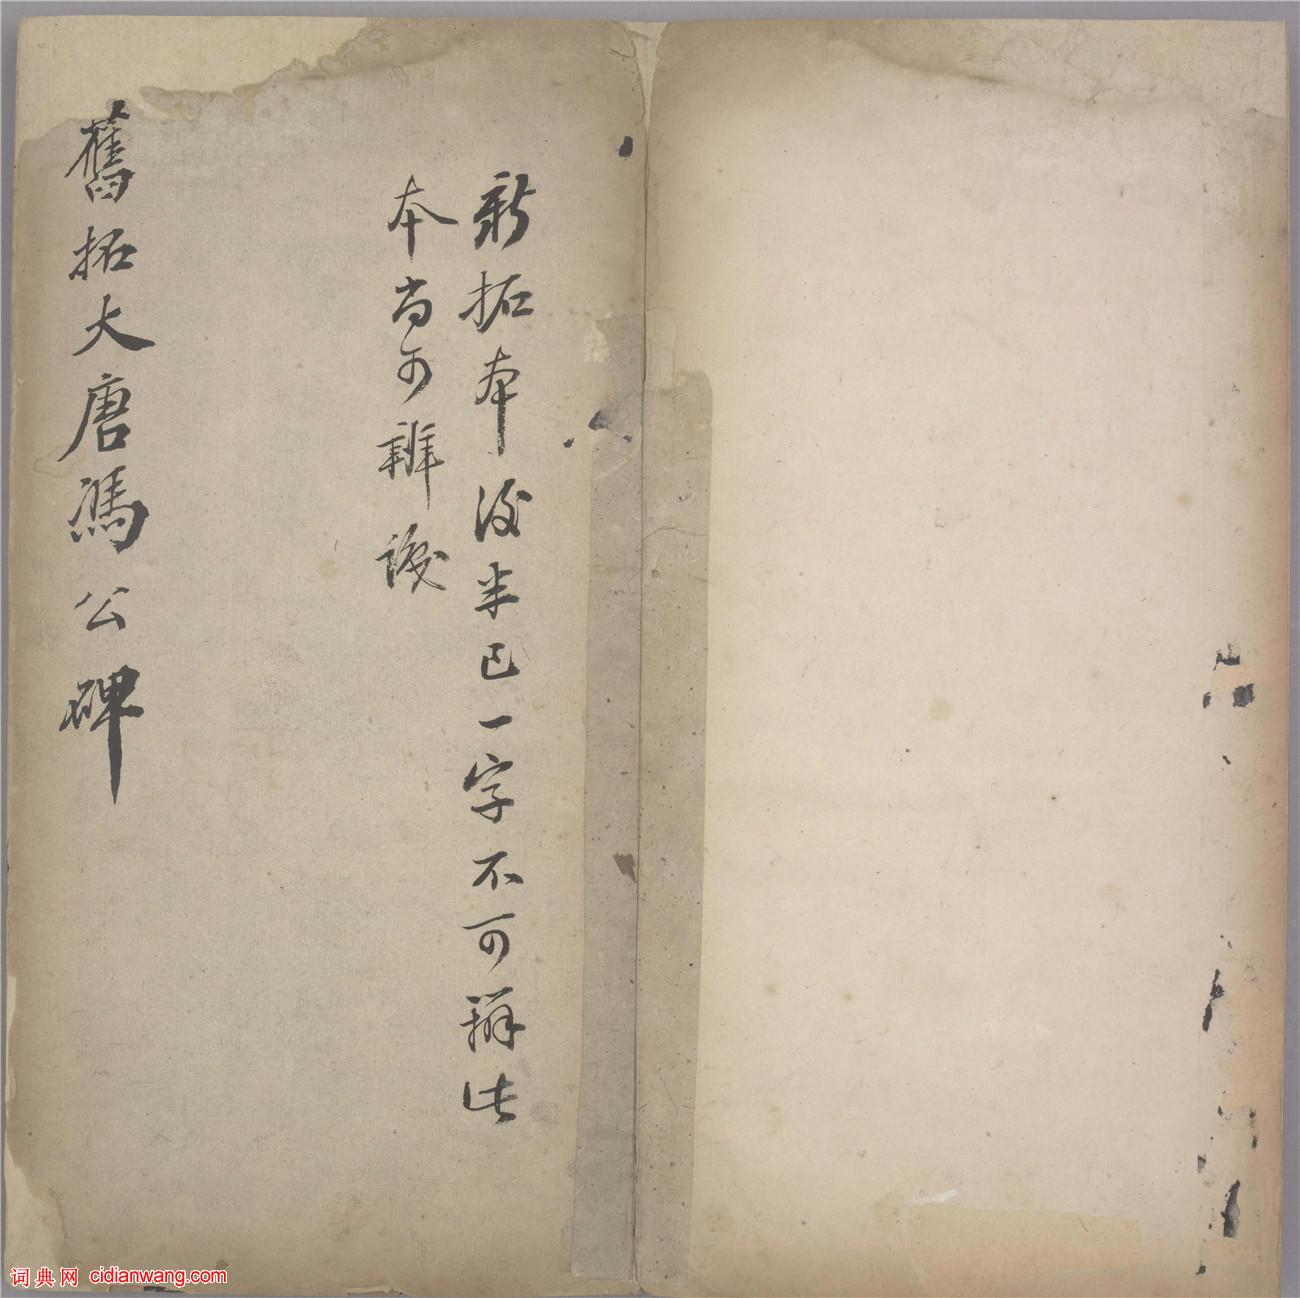 新拓本後半已一字不可辨此
本尚可辨識
舊拓大唐馮公碑
词典网 cidianwang.com